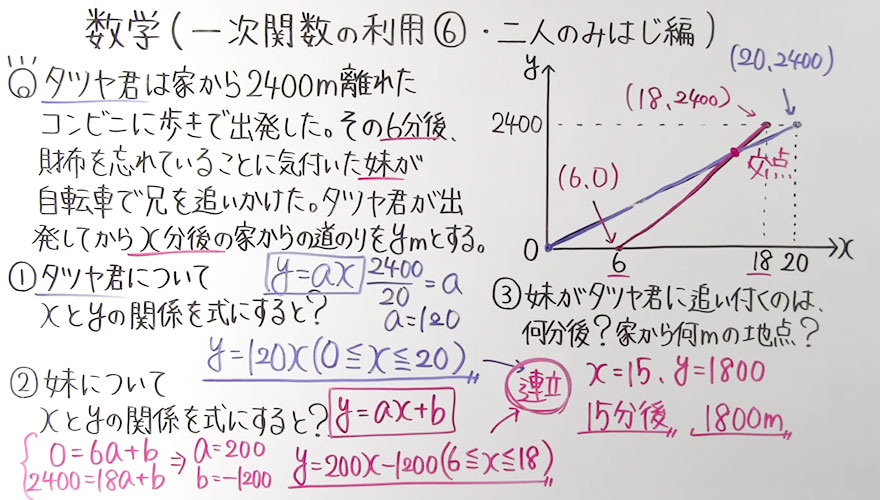 数学(一次関数の利用⑥・二人のみはじ編)
タツヤ君は家から2400m離れた
コンビニに歩きで出発した。その6分後、
財布を忘れていることに気付いた妹が
自転車で兄を追いかけた。タツヤ君が出
発してからx分後の家からの道のりをymとする。
①タツヤ君について
xとyの関係を式にすると?
y=ax
2400/20=a
a=120
y=120x(0≦x≦20)
②妹について
xとyの関係を式にすると?
y=ax+b
0=6a+b
2400=18a+b
⇒
a=200
b=-1200
y=200x-1200(6≦x≦18)
y
(20,2400)
(18,2400)
2400
(6,0)
交点
0
6
18
20
x
③妹がタツヤ君に追い付くのは、
何分後?家から何mの地点?
連立
x=15、y=1800
15分後、1800m